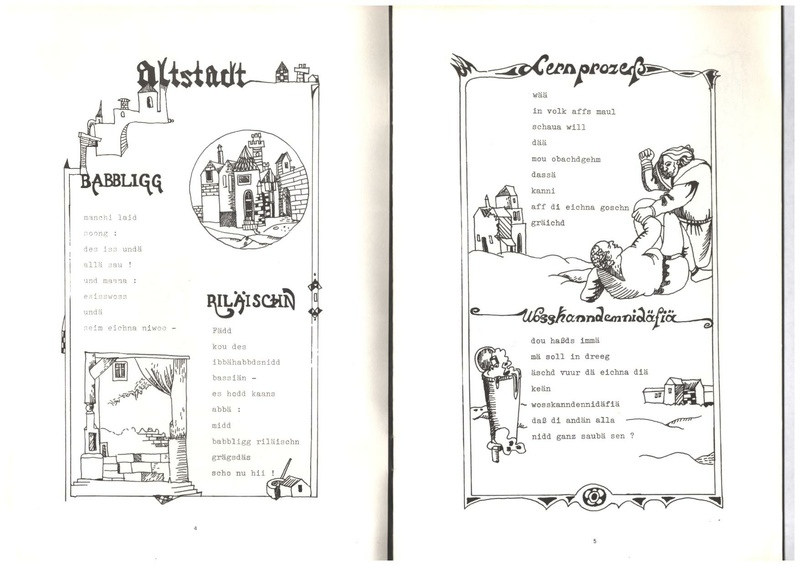 Altstadt
BABBLIGG
manchi laid
saong :
des iss undä
allä sau !
und manna :
esisswoss
undä
seim eichna niwoo -
RILÄISCHN
Fädd
kou des
ibbähabbdsnidd
bassiän -
es hodd kanns
abbä :
midd
babbligg riläischn
grägsdäs
scho nu hii !
4
Lernprozeß
wää
in volk affs maul
schaua will
dää
mou obachdgehm
dassä
kanni
aff di eichna goschn
gräichd
Wosskanndennidäfiä
dou haßds immä
mä soll in dreeg
äschd vuur dä eichna diä
keän
wosskanndennidäfiä
daß di andän alla
nidd ganz saubä sen ?
5